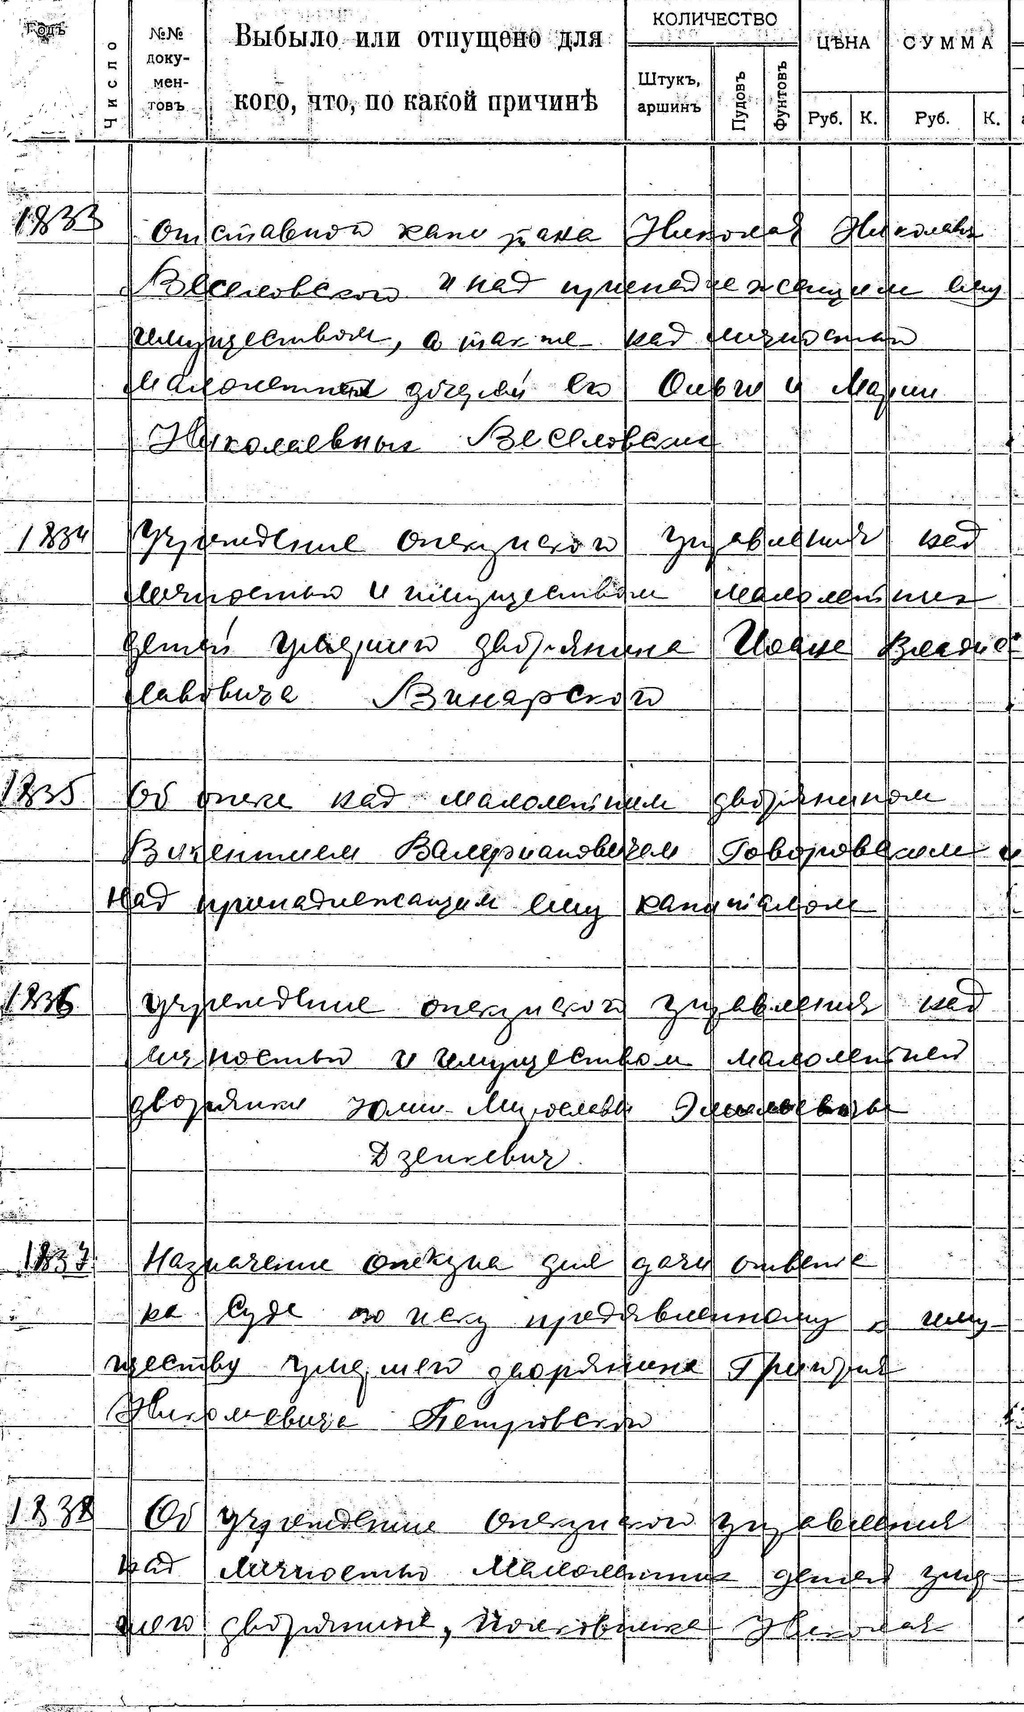 Годъ
Число
№№ доку-
мен-
товъ
Выбыло или отпущено для
кого, что, по какой причинѣ
КОЛИЧЕСТВО
Штукъ,
аршинъ
Пудовъ
Фунтовъ
ЦѢНА
Руб. К.
СУММА
Руб. К.
1833 отставного капитана Николая Николаев
Веселовского и над принадлежащим ему
имуществом, а также над личностью
малолетних дочерей его Ольги и Марии
Николаевных Веселовских
1834 Учреждение опекунского управления над
личностью и имуществом малолетних
детей умершего дворянина Иоана Владис
лавовича Винарского
1835 Об опеке над малолетним дворянином
Викентием Валериановичем Говоровским и
над принадлежащим ему капиталом
1836 учреждение опекунского управления над
личностью и имуществом малолетней
дворянки Юлии Эмильевны
Дзенкевич
1837 Назначение опекуна для дачи ответа
на суде по иску предявленному к иму-
ществу умершего дворянина Григория
Николаевича Петровского
1838 Об учреждение опекунского управления
над личностью малолетних детей умер-
шего дворянина, полковника Николая